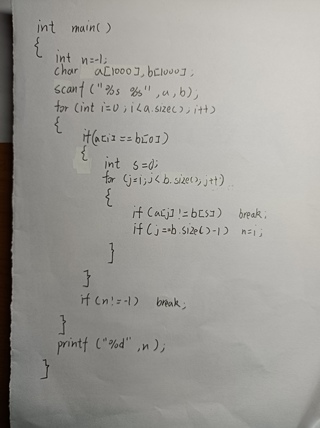 int main()
{
int n=-1;
char a[1000],b[1000];
scanf("%s %s",a,b);
for(int i=0;i<a.size();i++)
{
if(a[i]==b[0])
{
int s=0;
for(j=i;j<b.size();j++)
{
if(a[j]!=b[s]) break;
if(j==b.size()-1) n=i;
}
}
if(n!=-1) break;
}
printf("%d",n);
}